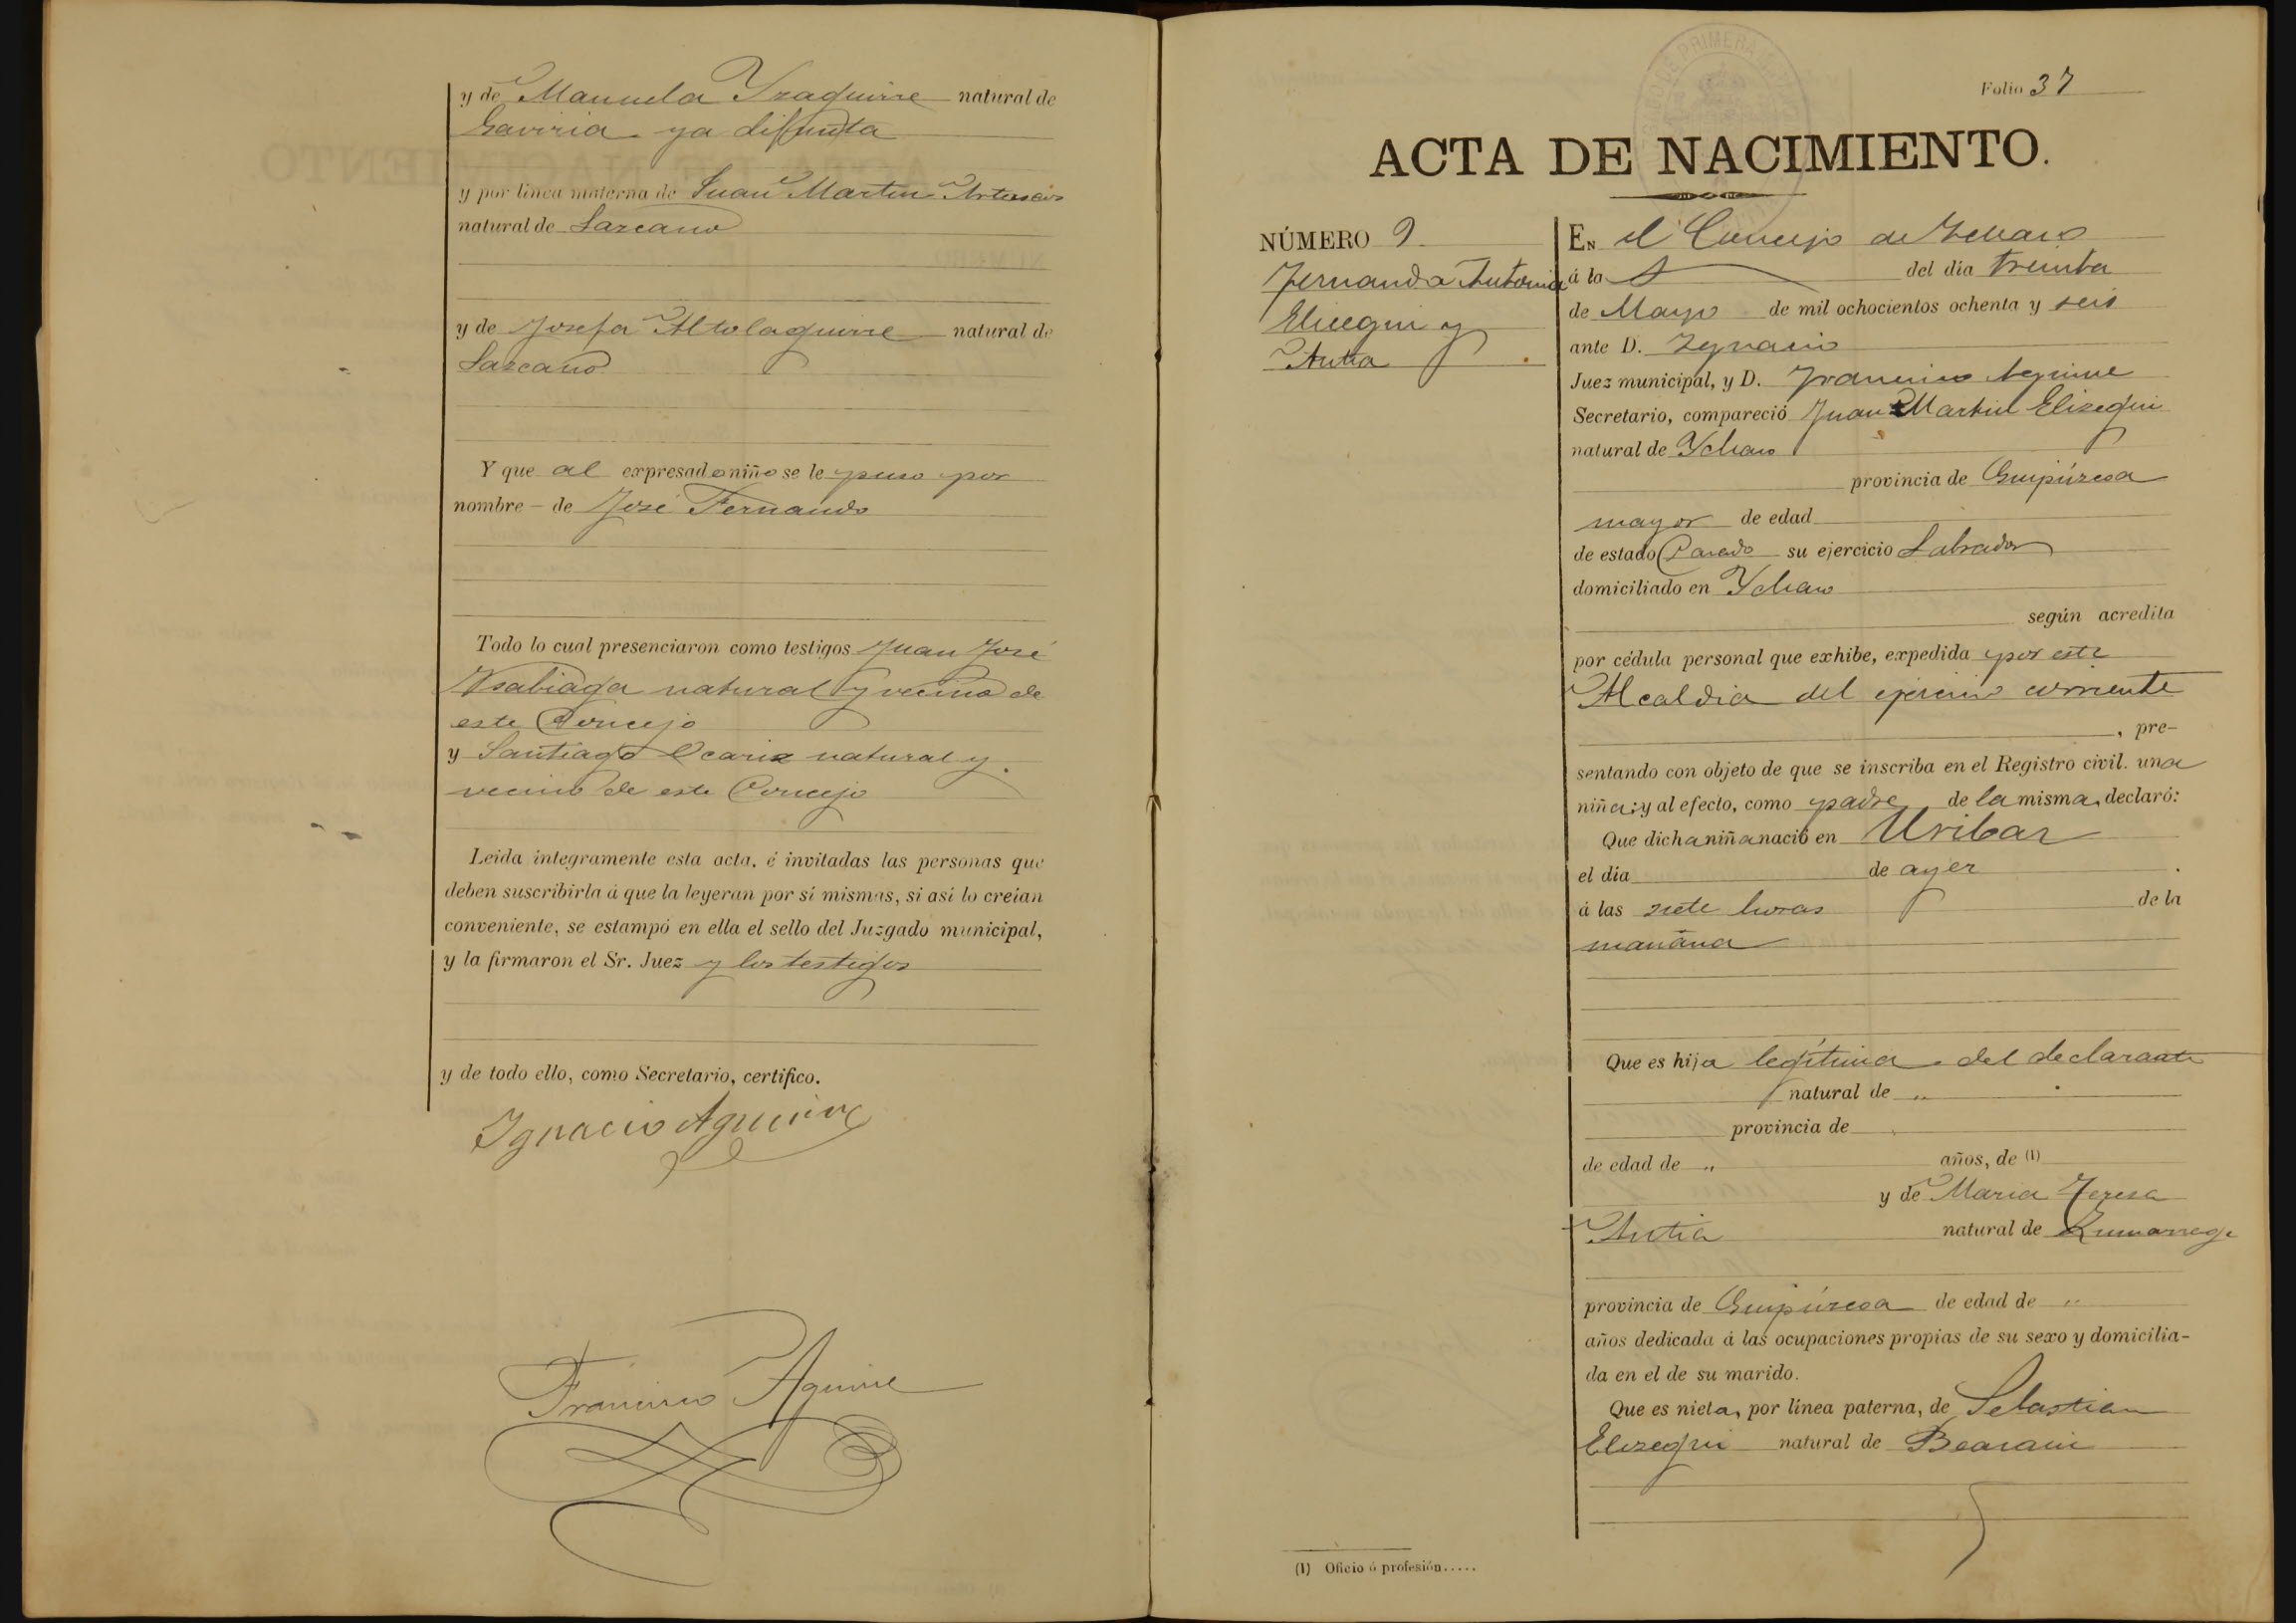 y de Manuela Yzaguirre natural de
Gaviria ya difunta
y por linea materna de Juan Martin
natural de Lazcano
y de Josefa Altolaguirre natural de
Lazcano
Y que al expresado niño se le puso por
nombre – de José Fernando
Todo lo cual presenciaron como testigos Juan José
natural y vecino de
este Concejo
y Santiago Ocariz natural y
vecino de este Concejo
Leida integramente esta acta, é invitadas las personas que
deben suscribirla á que la leyeran por sí mismas, si así lo creían
conveniente, se estampó en ella el sello del Juzgado municipal,
y la firmaron el Sr. Juez y los testigos
y de todo ello, como Secretario, certifico.
Ignacio Aguirre
Francisco Aguirre
Folio 37
ACTA DE NACIMIENTO.
NÚMERO 9
Fernanda Antonia
Elicegui y
Antia
EN el Concejo de
á la del dia treinta
de Mayo de mil ochocientos ochenta y seis
ante D. Ygnacio
Juez municipal, y D. Francisco Aguirre
Secretario, compareció Juan Martin Elizegui
natural de Ychaso
provincia de Guipúzcoa
mayor de edad
de estado Casado su ejercicio Labrador
domiciliado en Ychaso
según acredita
por cédula personal que exhibe, expedida por esta
Alcaldia del ejercicio corriente
, pre-
sentando con objeto de que se inscriba en el Registro civil. una
niña; y al efecto, como padre de la misma, declaró:
Que dicha niña nació en Uribar
el día de ayer
á las siete horas de la
mañana
Que es hija legítima del declarante
natural de „
provincia de
de edad de „ años, de (1)
y de Maria Teresa
Antia natural de Zumarraga
provincia de Guipúzcoa de edad de „
años dedicada á las ocupaciones propias de su sexo y domicilia-
da en el de su marido.
Que es nieta, por línea paterna, de Sebastian
Elizegui natural de Beasain
(1) Oficio ó profesión.....